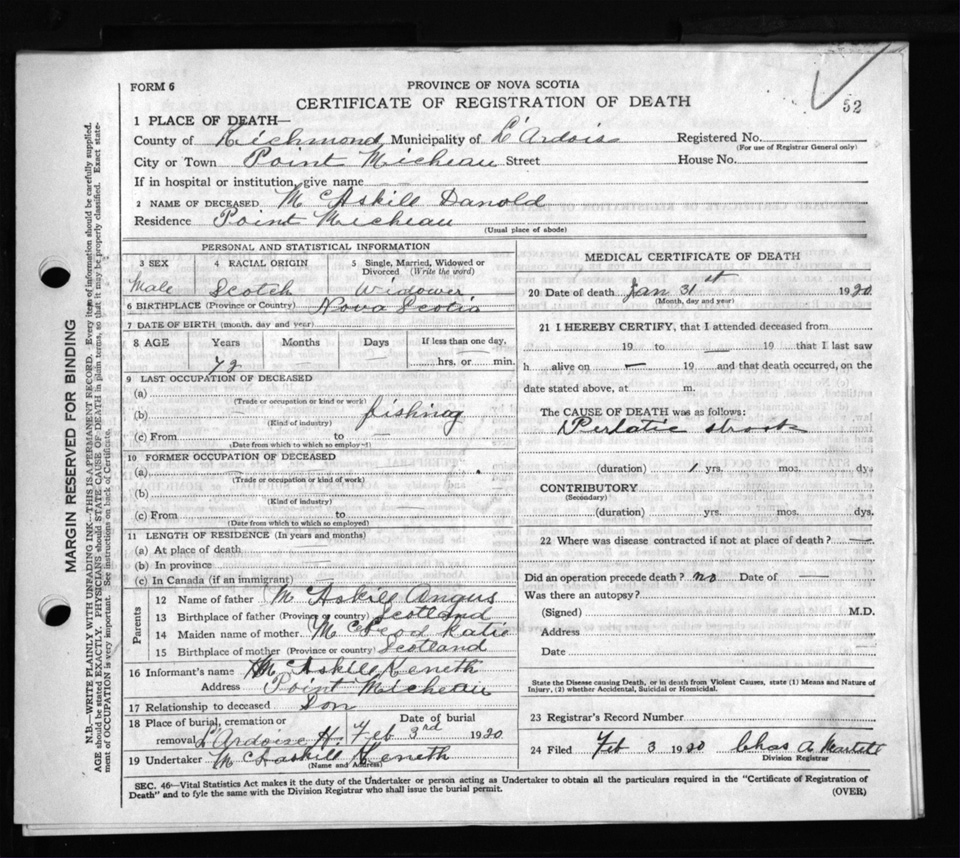 52
FORM 6
PROVINCE OF NOVA SCOTIA
CERTIFICATE OF REGISTRATION OF DEATH
1 PLACE OF DEATH—
County of Richmond Municipality of L'Ardois Registered No.
(For use of Registrar General only)
City or Town Point Micheau Street House No.
If in hospital or institution, give name
2 NAME OF DECEASED McAskill Danold
Residence Point Micheau
(Usual place of abode)
PERSONAL AND STATISTICAL INFORMATION
3 SEX 4 RACIAL ORIGIN 5 Single, Married, Widowed or Divorced (Write the word)
Male Scotch Widower
6 BIRTHPLACE (Province or Country) Nova Scotia
7 DATE OF BIRTH (month, day and year)
8 AGE Years Months Days If less than one day,
hrs. or min.
9 LAST OCCUPATION OF DECEASED
(a)
(Trade or occupation or kind or work)
(b) fishing
(Kind of industry)
(c) From to —
(Date from which to which so employed)
10 FORMER OCCUPATION OF DECEASED
(a)
(Trade or occupation or kind of work)
(b)
(Kind of industry)
(c) From — to
(Date from which to which so employed)
11 LENGTH OF RESIDENCE (In years and months)
(a) At place of death
(b) In province
(c) In Canada (if an immigrant)
Parents
12 Name of father McAskill Angus
13 Birthplace of father (Province or country) Scotland
14 Maiden name of mother McLeod Katie
15 Birthplace of mother (Province or country) Scotland
16 Informant's name McAskill Keneth
Address Point Micheau
17 Relationship to deceased Son
18 Place of burial, cremation or removal L'Ardoise Date of burial Feb 3rd 1920
19 Undertaker McAskill Keneth
(Name and Address)
MEDICAL CERTIFICATE OF DEATH
20 Date of death Jan 31st 1920
(Month, day and year)
21 I HEREBY CERTIFY, that I attended deceased from
19 to — 19 that I last saw
h alive on — 19 and that death occurred, on the
date stated above, at m.
The CAUSE OF DEATH was as follows:
(duration) 1 yrs. mos. dys.
CONTRIBUTORY
(Secondary)
(duration) yrs. mos. dys.
22 Where was disease contracted if not at place of death? —
Did an operation precede death? no Date of —
Was there an autopsy?
(Signed) M.D.
Address
Date
State the Disease causing Death, or in death from Violent Causes, state (1) Means and Nature of
Injury, (2) whether Accidental, Suicidal or Homicidal.
23 Registrar's Record Number
24 Filed Feb 3 1920 Chas A
Division Registrar
SEC. 46—Vital Statistics Act makes it the duty of the Undertaker or person acting as Undertaker to obtain all the particulars required in the "Certificate of Registration of
Death" and to fyle the same with the Division Registrar who shall issue the burial permit.
(OVER)
MARGIN RESERVED FOR BINDING
N.B.—WRITE PLAINLY WITH UNFADING INK—THIS IS A PERMANENT RECORD. Every item of information should be carefully supplied.
AGE should be stated EXACTLY. PHYSICIANS should STATE CAUSE OF DEATH in plain terms, so that it may be properly classified. Exact state-
ment of OCCUPATION is very important. See instructions on back of Certificate.